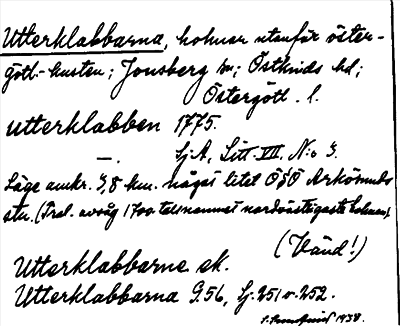 Utterklabbarna, holmar utanför öster-
götl.-kusten; Jonsberg sn; Östkinds hd;
Östergötl. l.
utterklabben 1775.
—. Sj.A. Litt. VII, N:o 3.
Läge omkr. 3,8 km. något litet OSO Arkösunds
stn. (Trol. avsåg 1700-talsnamnet nordöstligaste holmen).
(Vänd!)
Utterklabbarne ek.
Utterklabbarna G.56, Sj. 251 o. 252.
1938